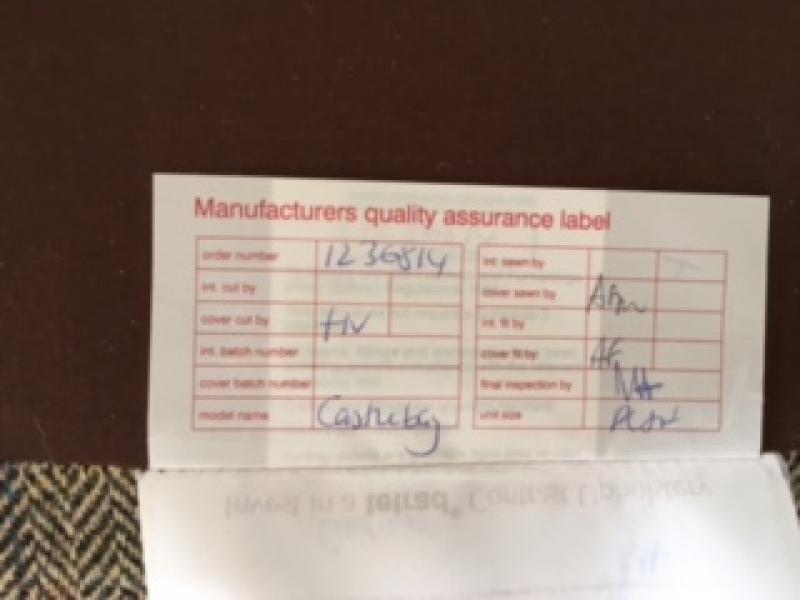 Manufacturers quality assurance label
order number 1236814
int. cut by
cover cut by HV
int. batch number
cover batch number
model name Castlebay
int. sewn by
cover sewn by
int. fit by
cover fit by AF
final inspection by
unit size
Invest in a tetrad® Contrast Upholstery